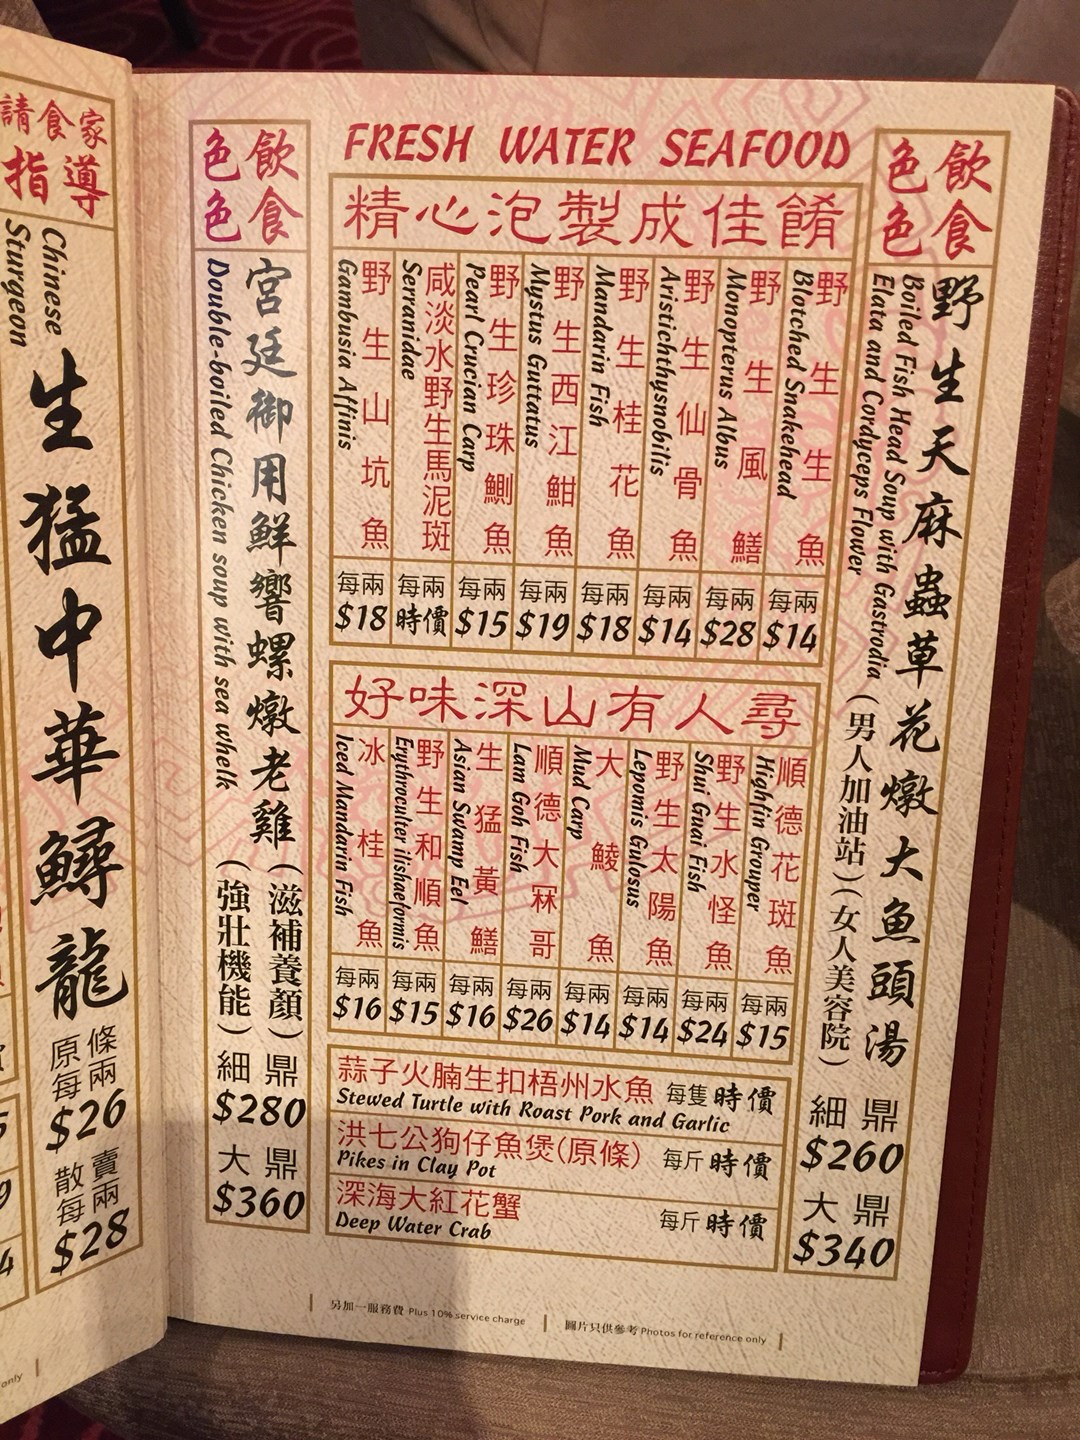 飲食
色色
野生天麻蟲草花燉大魚頭湯
Boiled Fish Head Soup with Gastrodia
Elata and Cordyceps Flower
(男人加油站)(女人美容院)
細鼎
$260
大鼎
$340
FRESH WATER SEAFOOD
精心泡製成佳餚
野生生魚
Blotched Snakehead
每兩
$14
野生風鱔
Monopterus Albus
每兩
$28
野生仙骨魚
Aristichthysnobilis
每兩
$14
野生桂花魚
Mandarin Fish
每兩
$18
野生西江魽魚
Mystus Guttatus
每兩
$19
野生珍珠鰂魚
Pearl Crucian Carp
每兩
$15
咸淡水野生馬泥斑
Serranidae
每兩
時價
野生山坑魚
Gambusia Affinis
每兩
$18
好味深山有人尋
順德花斑魚
Highfin Grouper
每兩
$15
野生水怪魚
Shui Guai Fish
每兩
$24
野生太陽魚
Lepomis Gulosus
每兩
$14
大鯪魚
Mud Carp
每兩
$14
順德大冧哥
Lam Goh Fish
每兩
$26
生猛黃鱔
Asian Swamp Eel
每兩
$16
野生和順魚
Erythroculter ilishaeformis
每兩
$15
冰桂魚
Iced Mandarin Fish
每兩
$16
蒜子火腩生扣梧州水魚 每隻 時價
Stewed Turtle with Roast Pork and Garlic
洪七公狗仔魚煲(原條) 每斤 時價
Pikes in Clay Pot
深海大紅花蟹 每斤 時價
Deep Water Crab
飲食
色色
宮廷御用鮮響螺燉老雞
Double-boiled Chicken soup with sea whelk
(滋補養顏)
(強壯機能)
細鼎
$280
大鼎
$360
另加一服務費 Plus 10% service charge
圖片只供參考 Photos for reference only
請食家
指導
生猛中華鱘龍
Chinese
Sturgeon
原條
每兩
$26
散賣
每兩
$28
only